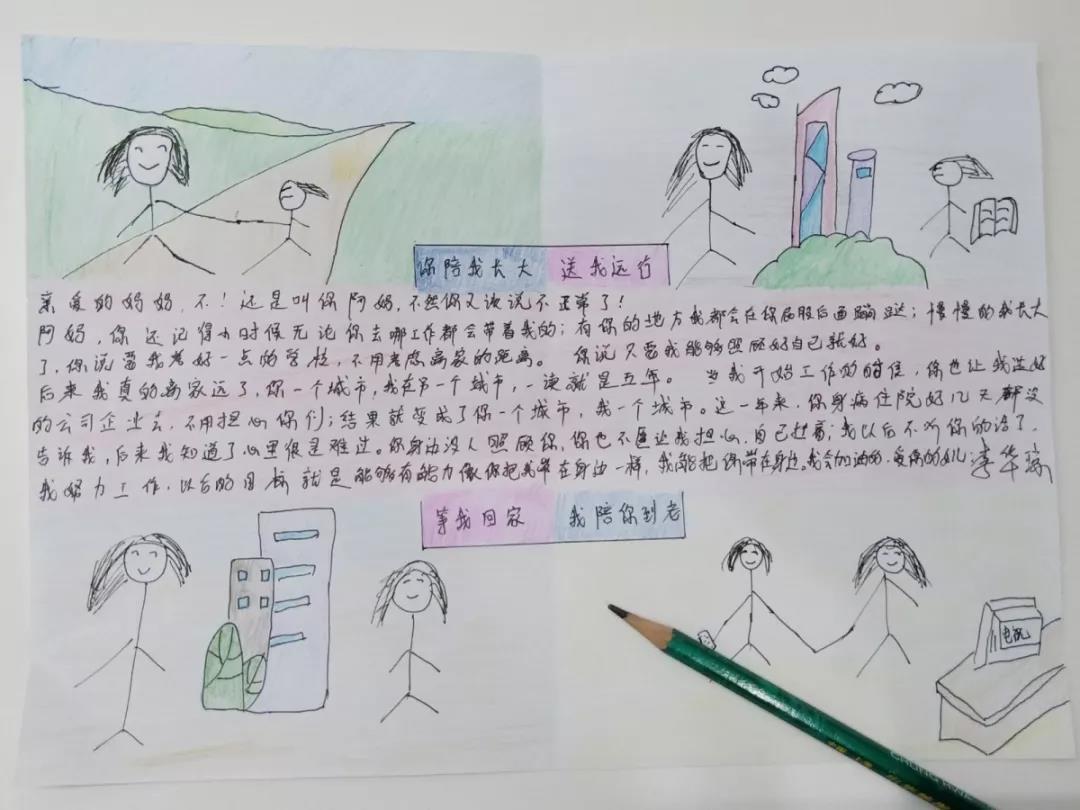 你陪我长大 送我远行
亲爱的妈妈,不!还是叫你阿妈,不然你又该说不正常了!
阿妈,你还记得小时候无论你去哪工作都会带着我的;有你的地方我都会在你屁股后面蹦跶;慢慢的我长大
了,你说要我考好一点的学校,不用考虑离家的距离。 你说只要我能够照顾好自己就好。
后来我真的离家远了,你一个城市,我在另一个城市,一读就是五年。 当我开始工作的时候,你也让我选好
的公司企业去,不用担心你们;结果就变成了你一个城市,我一个城市。这一年来,你身病住院好几天都没
告诉我,后来我知道了心里很是难过。你身边没人照顾你,你也不愿让我担心,自己扛着;我以后不听你的话了,
我努力工作,以后的目标就是能够有能力像你把我带在身边一样,我能把你带在身边。我会加油的。爱你的女儿:李华
等我回家 我陪你到老
电视
CHUNG HWA